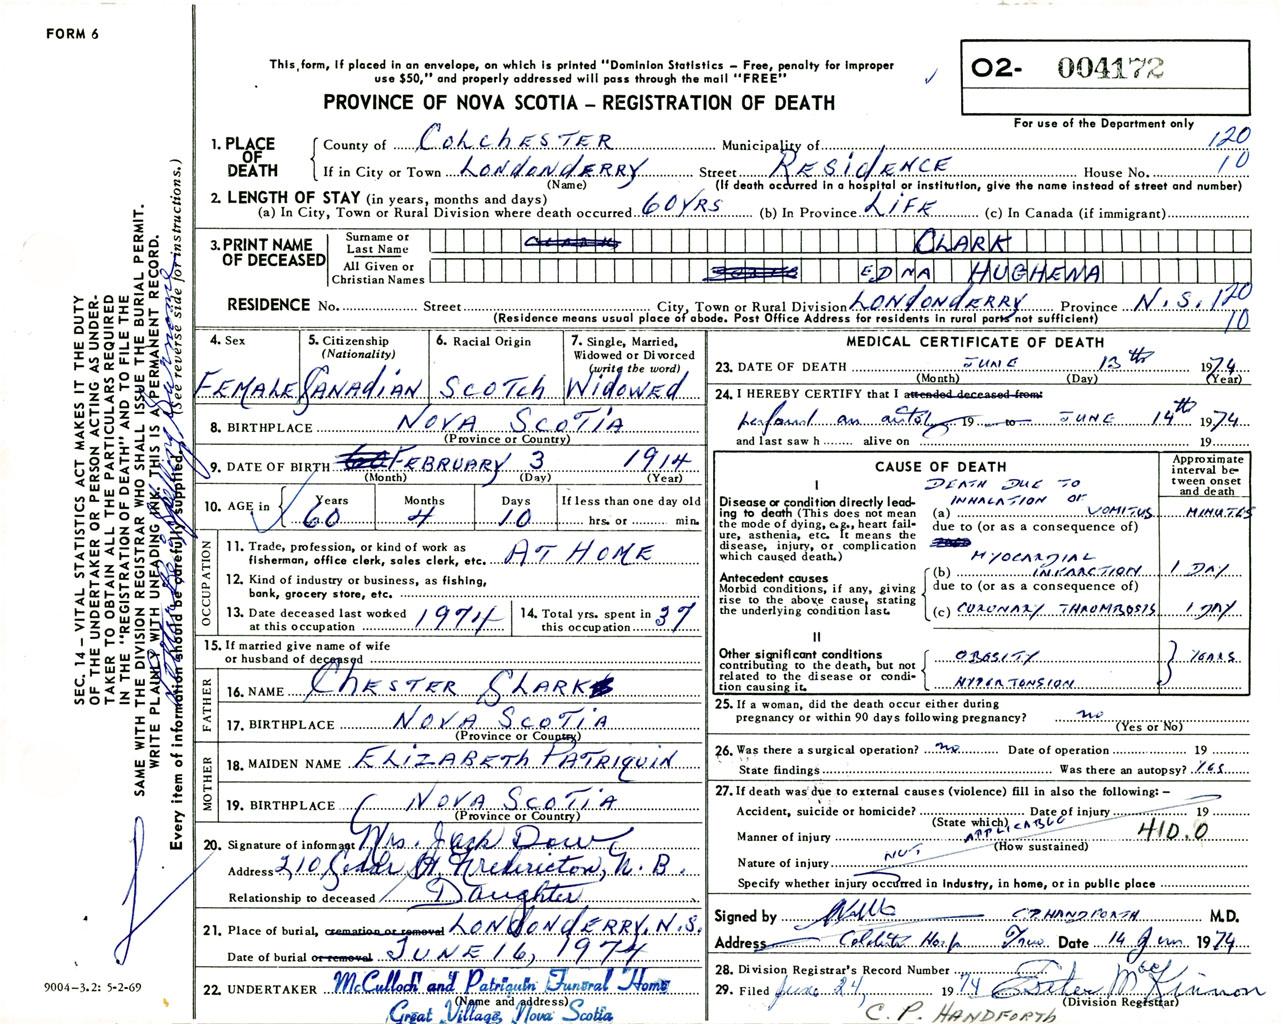 FORM 6
This form, if placed in an envelope, on which is printed "Dominion Statistics – Free, penalty for improper
use $50," and properly addressed will pass through the mail "FREE"
PROVINCE OF NOVA SCOTIA – REGISTRATION OF DEATH
O2- 004172
For use of the Department only
1. PLACE OF DEATH
County of COLCHESTER Municipality of 120
If in City or Town LONDONDERRY Street RESIDENCE House No. 10
(Name) (If death occurred in a hospital or institution, give the name instead of street and number)
2. LENGTH OF STAY (in years, months and days)
(a) In City, Town or Rural Division where death occurred 60 YRS (b) In Province LIFE (c) In Canada (if immigrant)
3. PRINT NAME OF DECEASED
Surname or Last Name CLARK CLARK
All Given or Christian Names EDNA HUGHENA
RESIDENCE No. Street City, Town or Rural Division LONDONDERRY Province N.S. 120
(Residence means usual place of abode. Post Office Address for residents in rural parts not sufficient) 10
4. Sex
FEMALE
5. Citizenship
(Nationality)
CANADIAN
6. Racial Origin
SCOTCH
7. Single, Married,
Widowed or Divorced
(write the word)
WIDOWED
8. BIRTHPLACE NOVA SCOTIA
(Province or Country)
9. DATE OF BIRTH FEBRUARY 3 1914
(Month) (Day) (Year)
10. AGE in
Years Months Days If less than one day old
60 4 10 hrs. or min.
OCCUPATION
11. Trade, profession, or kind of work as
fisherman, office clerk, sales clerk, etc. AT HOME
12. Kind of industry or business, as fishing,
bank, grocery store, etc.
13. Date deceased last worked
at this occupation 1974
14. Total yrs. spent in
this occupation 37
15. If married give name of wife
or husband of deceased
FATHER
16. NAME CHESTER CLARK
17. BIRTHPLACE NOVA SCOTIA
(Province or Country)
MOTHER
18. MAIDEN NAME ELIZABETH PATRIQUIN
19. BIRTHPLACE NOVA SCOTIA
(Province or Country)
20. Signature of informant Mrs. Jack Dow
Address 210 Cedar Fredericton, N.B.
Relationship to deceased Daughter
21. Place of burial, cremation or removal LONDONDERRY, N.S.
Date of burial or removal JUNE 16, 1974
22. UNDERTAKER McCulloch and Patriquin Funeral Home
(Name and address)
Great Village, Nova Scotia
MEDICAL CERTIFICATE OF DEATH
23. DATE OF DEATH JUNE 13th 1974
(Month) (Day) (Year)
24. I HEREBY CERTIFY that I attended deceased from:
19 to JUNE 14th 1974
and last saw h alive on 19
CAUSE OF DEATH
Approximate
interval be-
tween onset
and death
I
Disease or condition directly lead-
ing to death (This does not mean
the mode of dying, e.g., heart fail-
ure, asthenia, etc. It means the
disease, injury, or complication
which caused death.)
DEATH DUE TO
INHALATION OF
(a) VOMITUS MINUTES
due to (or as a consequence of)
Antecedent causes
Morbid conditions, if any, giving
rise to the above cause, stating
the underlying condition last.
MYOCARDIAL
(b) INFARCTION 1 DAY
due to (or as a consequence of)
(c) CORONARY THROMBOSIS 1 DAY
II
Other significant conditions
contributing to the death, but not
related to the disease or condi-
tion causing it.
OBESITY
HYPERTENSION
YEARS
25. If a woman, did the death occur either during
pregnancy or within 90 days following pregnancy? no
(Yes or No)
26. Was there a surgical operation? no Date of operation 19
State findings Was there an autopsy? YES
27. If death was due to external causes (violence) fill in also the following: –
Accident, suicide or homicide? Date of injury 19
(State which)
Manner of injury APPLICABLE 410.0
(How sustained)
Nature of injury NOT
Specify whether injury occurred in industry, in home, or in public place
Signed by C.P. HANDFORTH M.D.
Address Hosp Date 14 Jun 1974
28. Division Registrar's Record Number
29. Filed June 24, 1974 McKinnon
(Division Registrar)
C. P. HANDFORTH
SEC. 14 – VITAL STATISTICS ACT MAKES IT THE DUTY
OF THE UNDERTAKER OR PERSON ACTING AS UNDER-
TAKER TO OBTAIN ALL THE PARTICULARS REQUIRED
IN THE "REGISTRATION OF DEATH" AND TO FILE THE
SAME WITH THE DIVISION REGISTRAR WHO SHALL ISSUE THE BURIAL PERMIT.
WRITE PLAINLY WITH UNFADING INK. THIS IS A PERMANENT RECORD.
Every item of information should be carefully supplied. (See reverse side for instructions.)
9004-3.2: 5-2-69